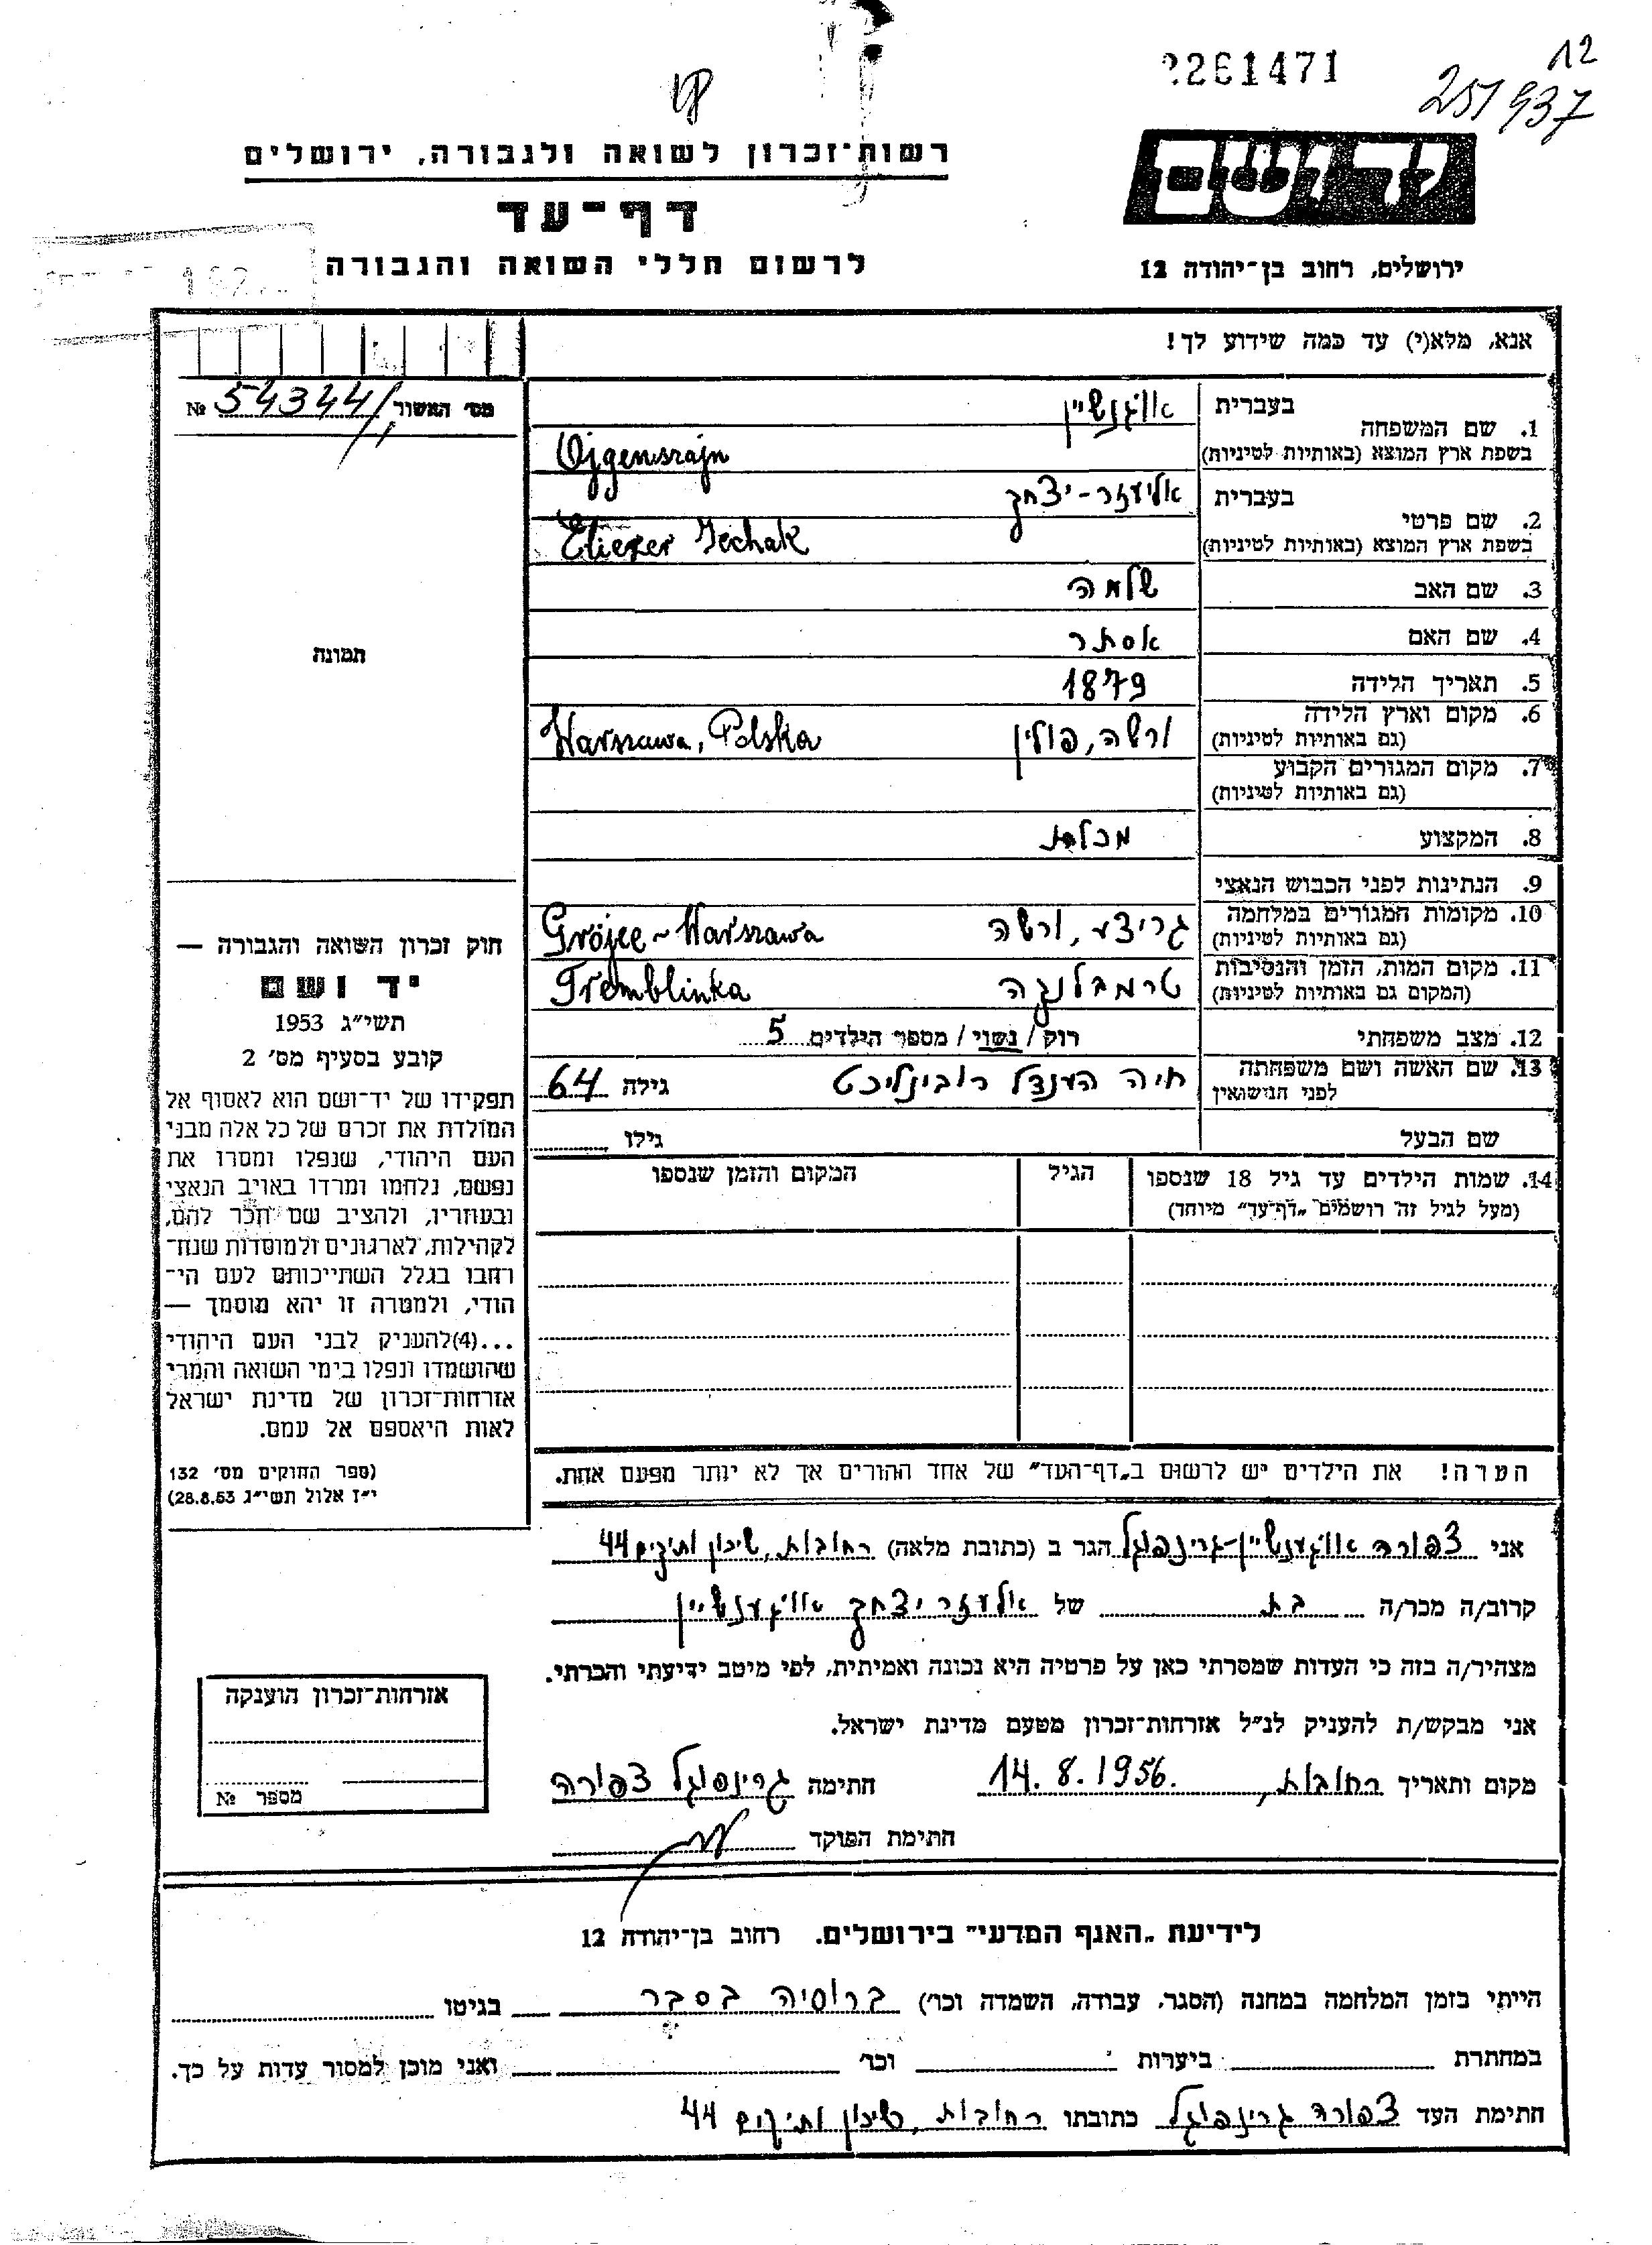 12
2261471
251937
רשות־זכרון לשואה ולגבורה, ירושלים
יד ושם
דף־עד
לרשום חללי השואה והגבורה
ירושלים, רחוב בן־יהודה 12
אנא, מלא(י) עד כמה שידוע לך!
מס׳ האשור 54344 №
בעברית
1. שם המשפחה
אוג׳גנשיין
בשפת ארץ המוצא (באותיות לטיניות)
Ojgensztajn
בעברית
2. שם פרטי
אליעזר-יצחק
בשפת ארץ המוצא (באותיות לטיניות)
Eliezer Icchak
3. שם האב שלמה
4. שם האם אסתר
5. תאריך הלידה 1879
6. מקום וארץ הלידה ורשה, פולין Warszawa, Polska
(גם באותיות לטיניות)
7. מקום המגורים הקבוע
(גם באותיות לטיניות)
8. המקצוע מכולת
9. הנתינות לפני הכבוש הנאצי
10. מקומות המגורים במלחמה גריצע, ורשה Grójec - Warszawa
(גם באותיות לטיניות)
11. מקום המות, הזמן והנסיבות טרמבלנקה Tremblinka
(המקום גם באותיות לטיניות)
12. מצב משפחתי רוק / נשוי / מספר הילדים 5
13. שם האשה ושם משפחתה חיה הענדל רובינליכט גילה 64
לפני הנישואין
שם הבעל גילו
14. שמות הילדים עד גיל 18 שנספו הגיל המקום והזמן שנספו
(מעל לגיל זה רושמים „דף־עד״ מיוחד)
הערה! את הילדים יש לרשום ב„דף־העד״ של אחד ההורים אך לא יותר מפעם אחת.
תמונה
חוק זכרון השואה והגבורה —
יד ושם
תשי״ג 1953
קובע בסעיף מס׳ 2
תפקידו של יד־ושם הוא לאסוף אל
המולדת את זכרם של כל אלה מבני
העם היהודי, שנפלו ומסרו את
נפשם, נלחמו ומרדו באויב הנאצי
ובעוזריו, ולהציב שם וזכר להם,
לקהילות, לארגונים ולמוסדות שנח־
רחבו בגלל השתייכותם לעם הי־
הודי, ולמטרה זו יהא מוסמך —
...(4)להעניק לבני העם היהודי
שהושמדו ונפלו בימי השואה והמרי
אזרחות־זכרון של מדינת ישראל
לאות היאספם אל עמם.
(ספר החוקים מס׳ 132
י״ז אלול תשי״ג 28.8.53)
אני צפורה אויגענשיין-גרינפוגל הגר ב (כתובת מלאה) רחובות, שיכון ותיקים 44
קרוב/ה מכר/ה בת של אלעזר יצחק אויגענשיין
מצהיר/ה בזה כי העדות שמסרתי כאן על פרטיה היא נכונה ואמיתית, לפי מיטב ידיעתי והכרתי.
אני מבקש/ת להעניק לנ״ל אזרחות־זכרון מטעם מדינת ישראל.
מקום ותאריך רחובות, 14.8.1956. חתימה גרינפוגל צפורה
חתימת הפוקד
אזרחות־זכרון הוענקה
מספר №
לידיעת „האגף המדעי״ בירושלים. רחוב בן־יהודה 12
הייתי בזמן המלחמה במחנה (הסגר, עבודה, השמדה וכו׳) ברוסיה בסבר בגיטו
במחתרת ביערות וכו׳ ואני מוכן למסור עדות על כך.
חתימת העד צפורה גרינפוגל כתובתו רחובות, שיכון ותיקים 44